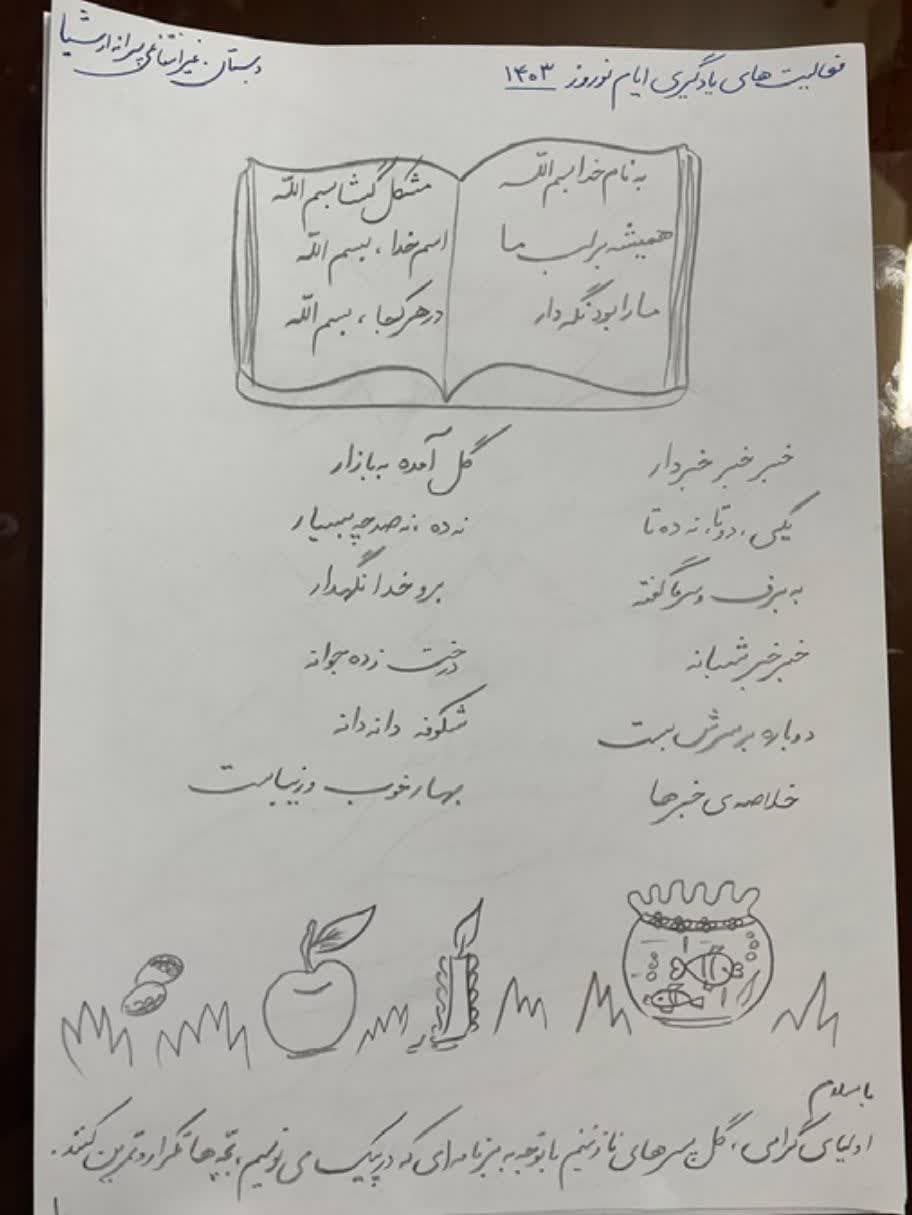 فعالیت های یادگیری ایام نوروز ۱۴۰۳
دبستان غیرانتفاعی پسرانه ارشیا
به نام خدا بسم اللّه
مشکل گشا بسم اللّه
همیشه بر لب ما
اسم خدا ، بسم اللّه
ما را بود نگه دار
در هر کجا ، بسم اللّه
خبر خبر خبردار
گل آمده به بازار
یکی ، دوتا ، نه ده تا
نه ده ، نه صد چه بسیار
به برف و سرما گفته
برو خدا نگهدار
خبر خبر شبانه
درخت زده جوانه
دوباره بر سرش بست
شکوفه دانه دانه
خلاصه ی خبرها
بهار خوب و زیباست
با سلام
اولیای گرامی ، گل پسرهای نازنینم با توجه به برنامه ای که در پیک می نویسیم ، بچّه ها تکرار و تمرین کنند .
۱